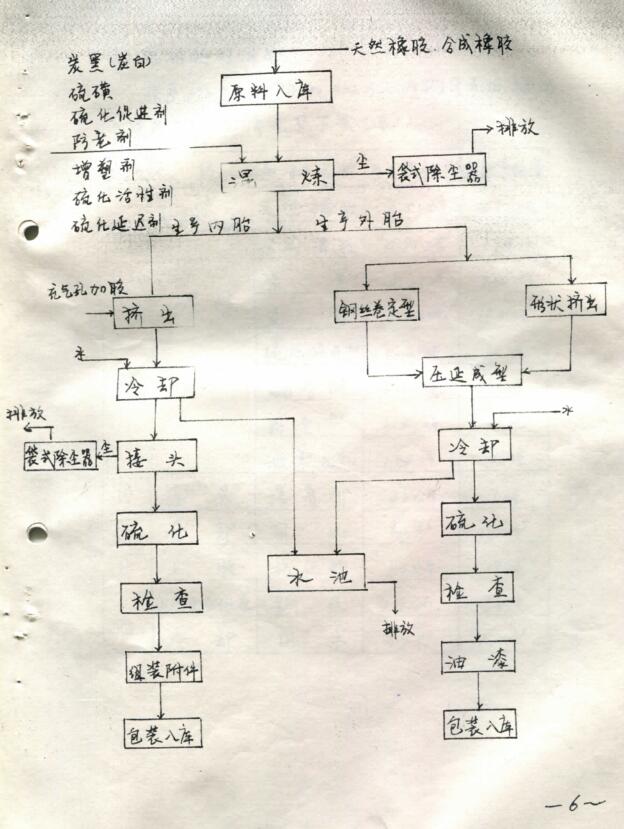 天然橡胶、合成橡胶
炭黑(炭白)
硫磺
硫化促进剂
防老剂
增塑剂
硫化活性剂
硫化延迟剂
原料入库
排放
混 炼
尘
袋式除尘器
生产内胎
生产外胎
充气孔加胶
挤出
钢丝卷定型
形状挤出
水
冷却
压延成型
水
排放
袋式除尘器
尘
接头
冷却
硫化
硫化
水池
检查
检查
排放
组装附件
油漆
包装入库
包装入库
—6~